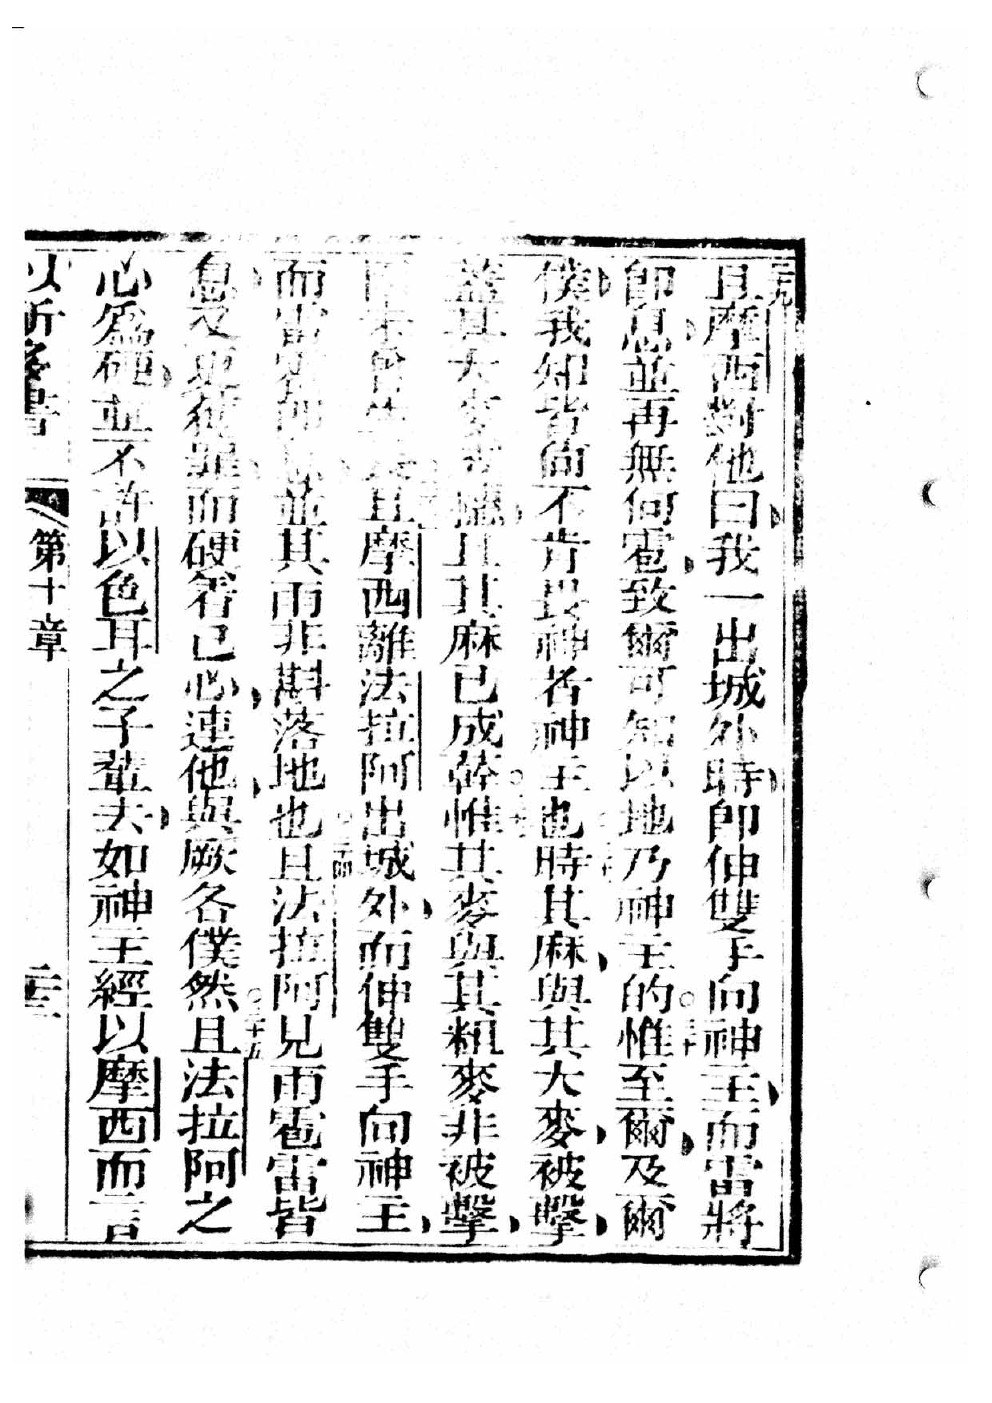 且摩西對他曰我一出城外時即伸雙手向神主而雷將
即息並再無何雹致爾可知以地乃神主的○三十惟至爾及爾
僕我知皆尚不肯畏神者神主也時其麻與其大麥被擊
蓋其大麥穗且其麻已成𦼮惟其麥與其粗麥非被擊
且摩西離法拉阿出城外而伸雙手向神主
而雷雹即息並其雨非斟落地也且法拉阿見雨雹雷皆
息又更犯罪而硬著己心連他與厥各僕然○三十五且法拉阿之
心為硬並不許以色耳之子輩去如神主經以摩西而言
以所多書 第十章 二十三